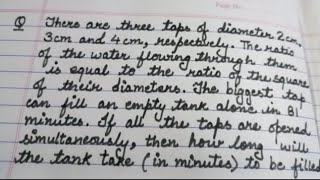 Q There are three taps of diameter 2cm,
3cm and 4cm, respectively. The ratio
of the water flowing through them
is equal to the ratio of the square
of their diameters. The biggest tap
can fill an empty tank alone in 81
minutes. If all the taps are opened
simultaneously, then how long will
the tank take (in minutes) to be filled